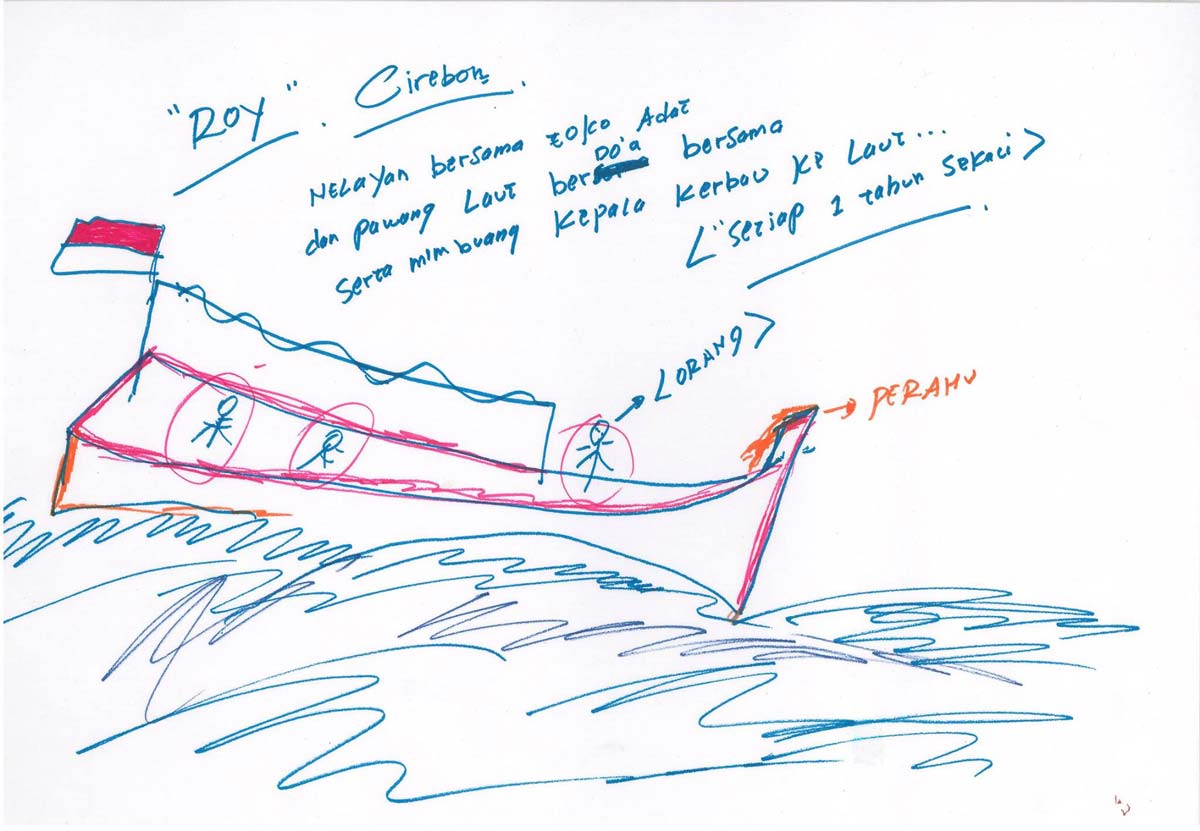 "ROY". Cirebon.
NELayan bersama toko Adat
dan pawang Laut ber Do'a bersama
serta mimbuang Kepala Kerbau KE Laut...
<"setiap 1 tahun sekali>
<ORANG>
PERAHU